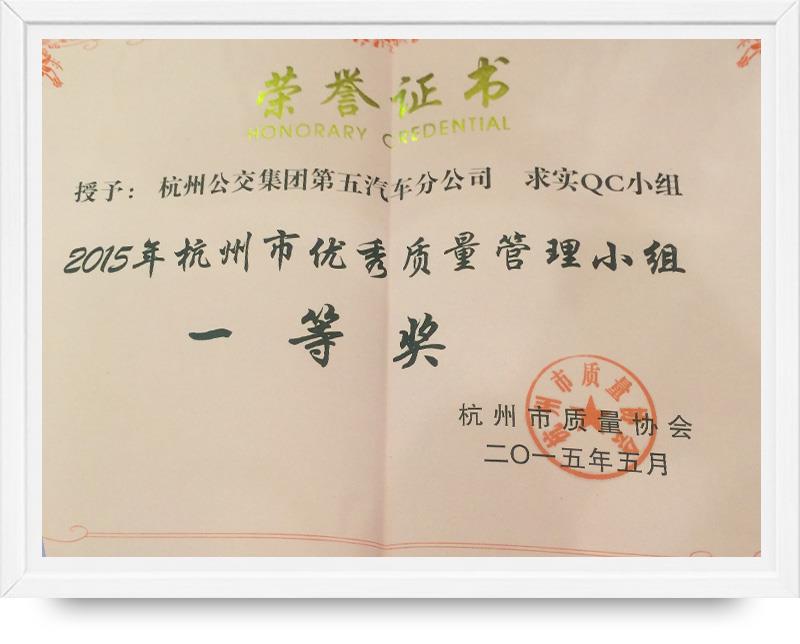 荣誉证书
HONORARY CREDENTIAL
授予： 杭州公交集团第五汽车分公司 求实QC小组
2015年杭州市优秀质量管理小组
一等奖
杭州市质量协会
杭州市质量协会
二〇一五年五月